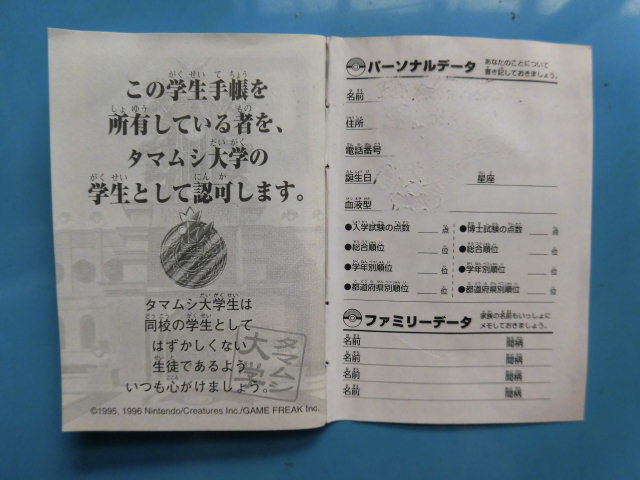 この学生手帳を
所有している者を、
タマムシ大学の
学生として認可します。
タマムシ大学生は
同校の学生として
はずかしくない
生徒であるよう
いつも心がけましょう。
タマムシ
大学
©1995, 1996 Nintendo/Creatures Inc./GAME FREAK Inc.
パーソナルデータ
あなたのことについて
書き記しておきましょう。
名前
住所
電話番号
誕生日 星座
血液型
●入学試験の点数 点 ●博士試験の点数 点
●総合順位 位 ●総合順位 位
●学年別順位 位 ●学年別順位 位
●都道府県別順位 位 ●都道府県別順位 位
ファミリーデータ
家族の名前もいっしょに
メモしておきましょう。
名前 間柄
名前 間柄
名前 間柄
名前 間柄